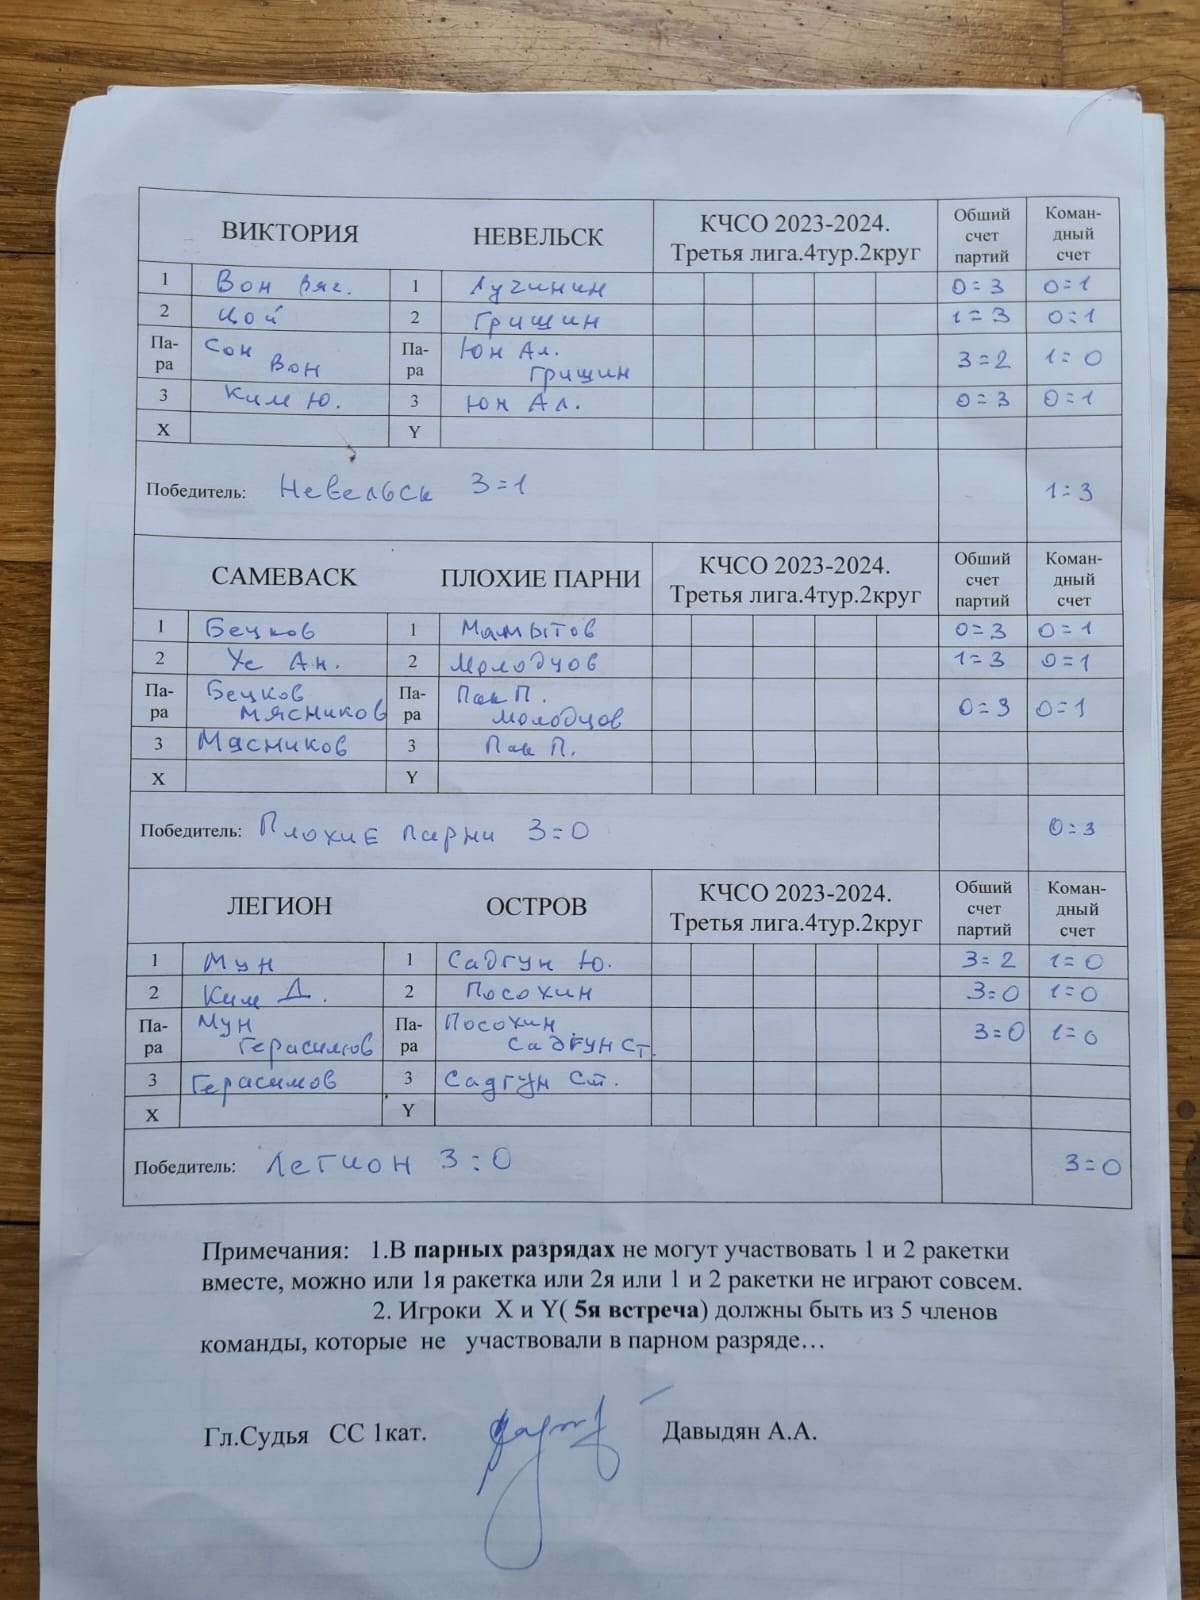 ВИКТОРИЯ НЕВЕЛЬСК КЧСО 2023-2024. Третья лига.4тур.2круг Обший счет партий Коман-дный счет
1 Вон Вяс. 1 Лучинин 0=3 0=1
2 Цой 2 Гришин 1=3 0:1
Па-ра Сон Вон Па-ра Юн Ал. Гришин 3=2 1=0
3 Ким Ю. 3 Юн Ал. 0=3 0=1
X Y
Победитель: Невельск 3=1 1=3
САМЕВАСК ПЛОХИЕ ПАРНИ КЧСО 2023-2024. Третья лига.4тур.2круг Обший счет партий Коман-дный счет
1 Бецков 1 Мамытов 0=3 0=1
2 Ус Ан. 2 Молодцов 1=3 0=1
Па-ра Бецков Мясников Па-ра Пак П. Молодцов 0=3 0=1
3 Мясников 3 Пак П.
X Y
Победитель: Плохие парни 3=0 0=3
ЛЕГИОН ОСТРОВ КЧСО 2023-2024. Третья лига.4тур.2круг Обший счет партий Коман-дный счет
1 Мун 1 Садгун Ю. 3=2 1=0
2 Ким Д. 2 Посохин 3=0 1=0
Па-ра Мун Герасимов Па-ра Посохин Садгун Ст. 3=0 1=0
3 Герасимов 3 Садгун Ст.
X Y
Победитель: Легион 3:0 3=0
Примечания: 1.В парных разрядах не могут участвовать 1 и 2 ракетки
вместе, можно или 1я ракетка или 2я или 1 и 2 ракетки не играют совсем.
2. Игроки X и Y( 5я встреча) должны быть из 5 членов
команды, которые не участвовали в парном разряде…
Гл.Судья СС 1кат. Давыдян А.А.